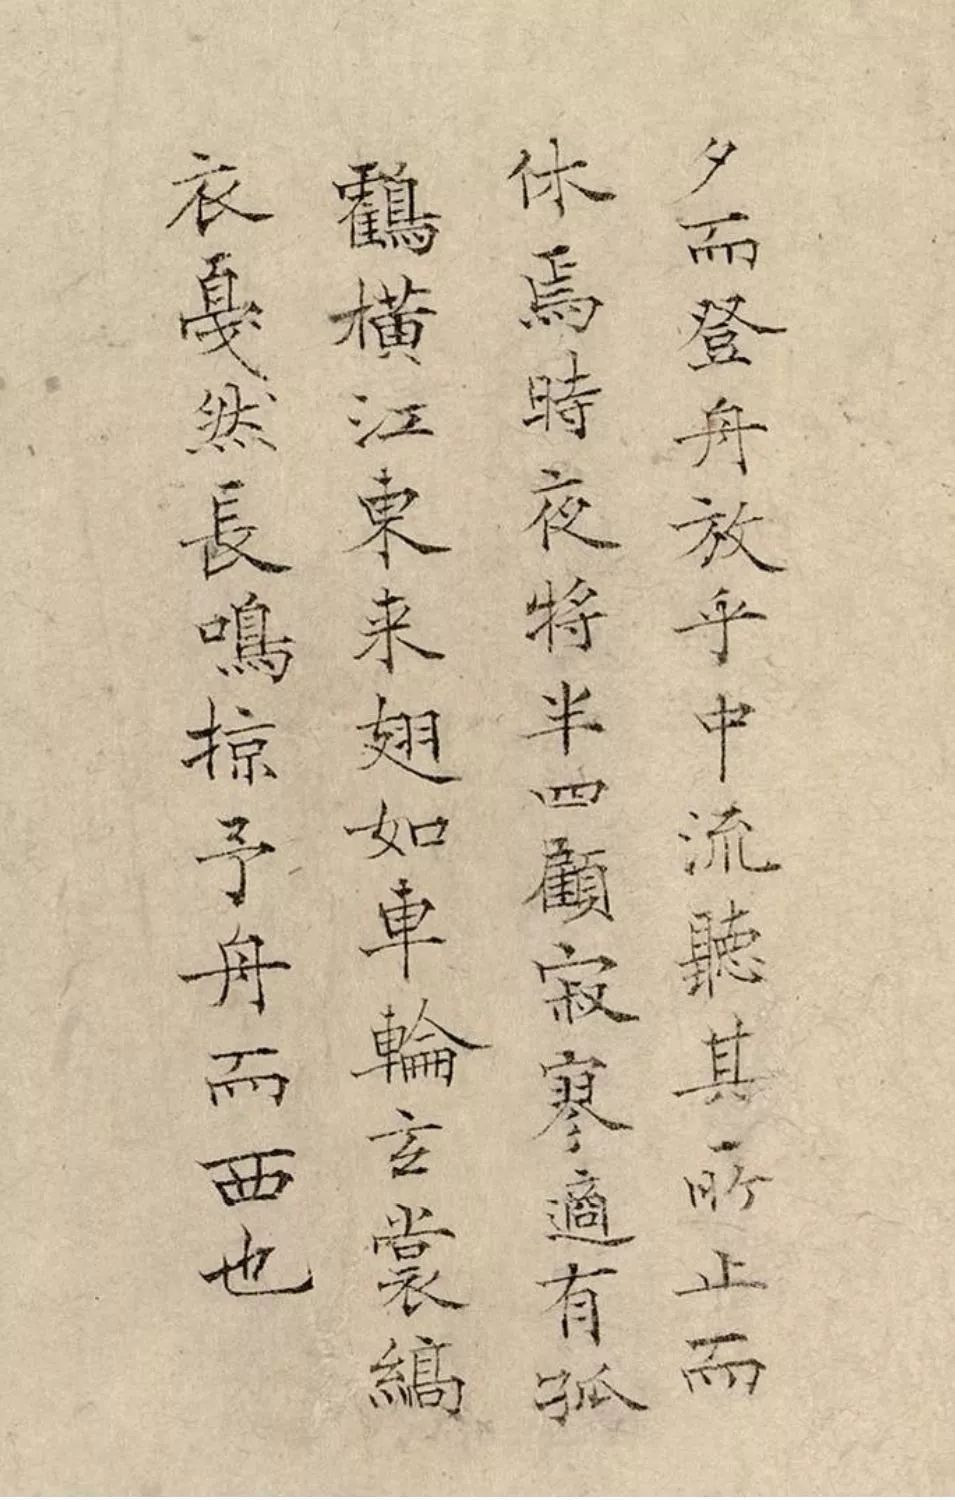 夕而登舟放乎中流聽其所止而
休焉時夜將半四顧寂寥適有孤
鸖橫江東来翅如車輪玄裳縞
衣戞然長鳴掠予舟而西也